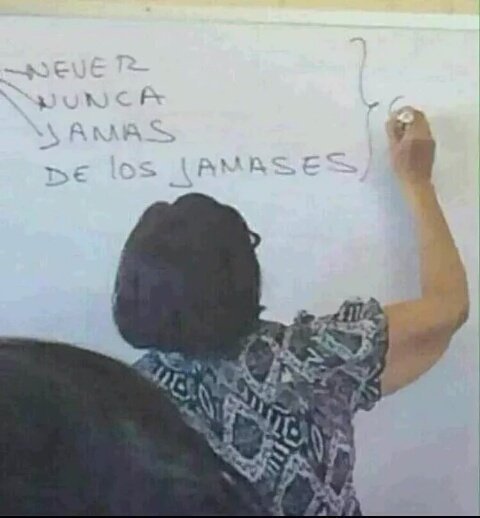 NEVER
NUNCA
JAMAS
DE LOS JAMASES